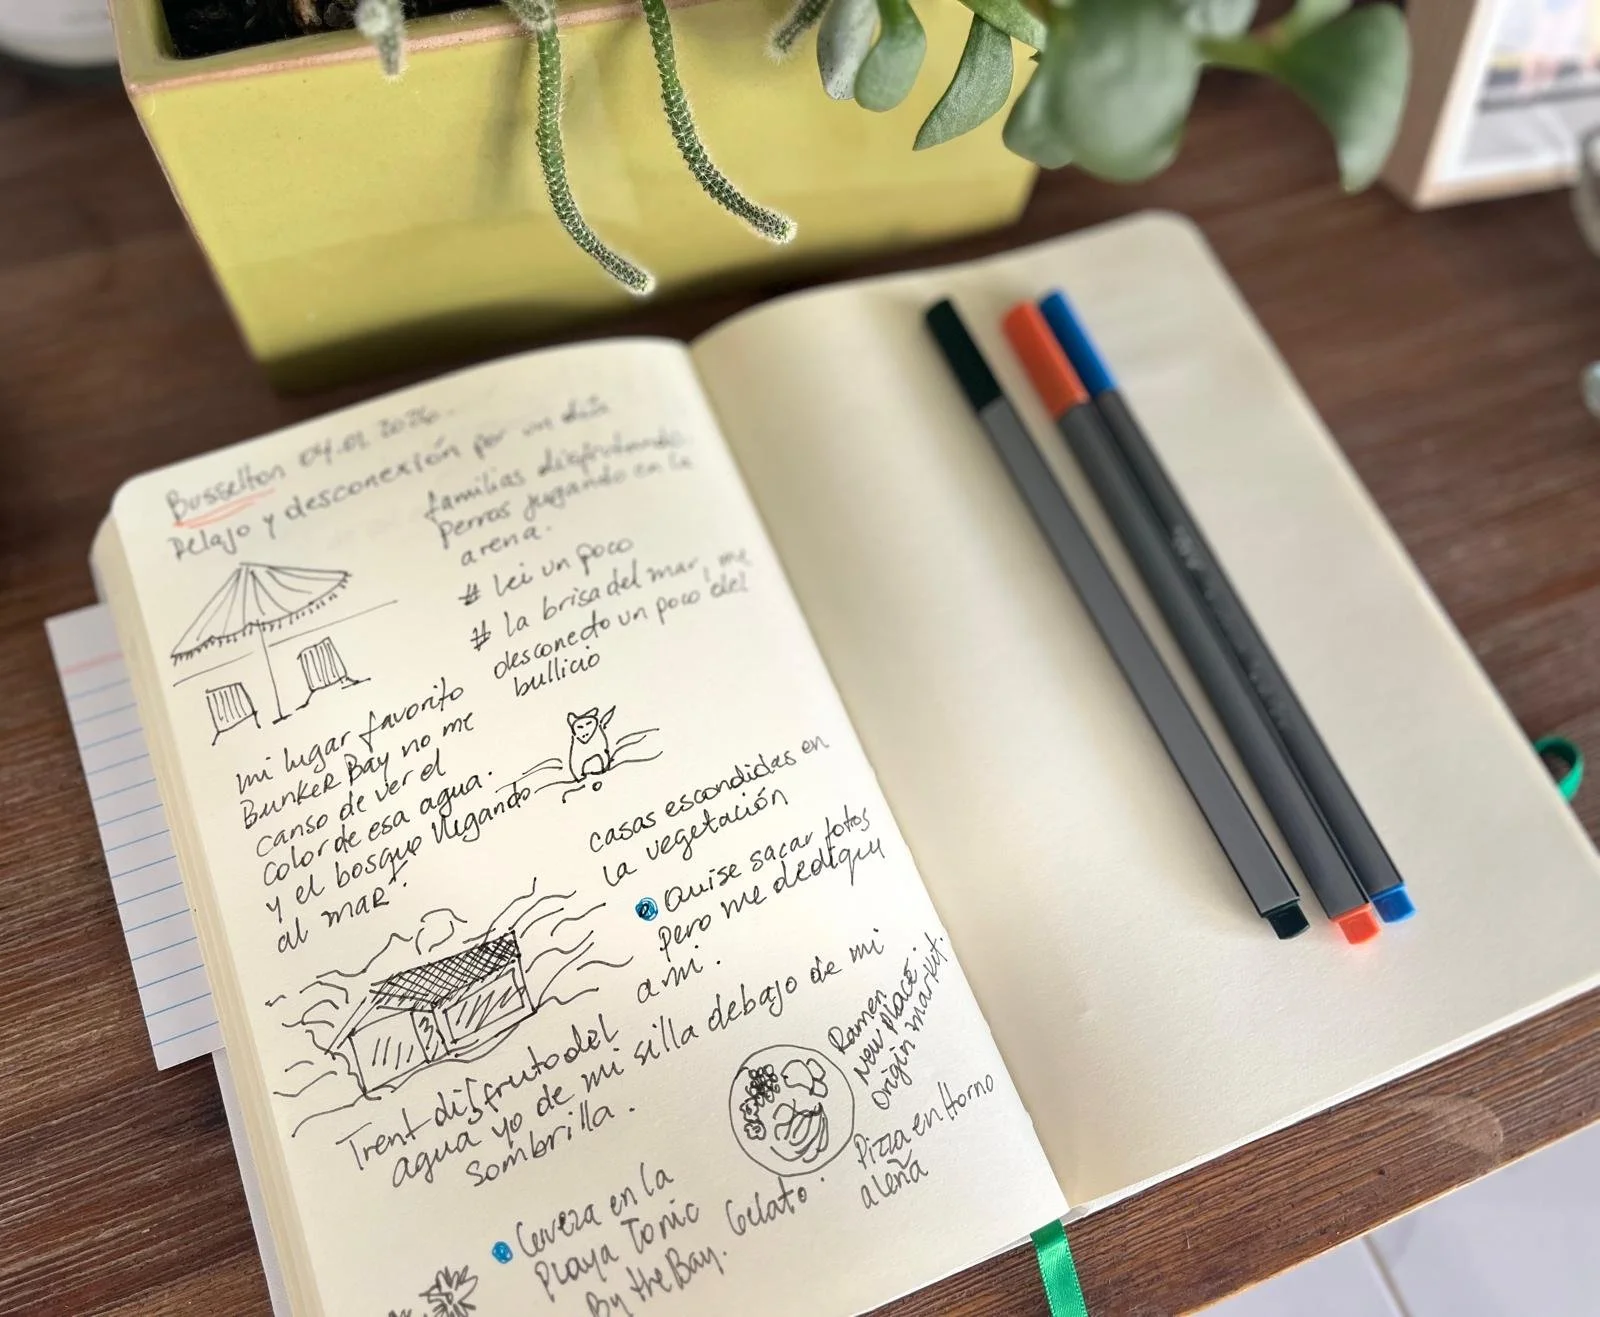 Busselton 04.01.2026.
Relajo y desconexión por un día
familias disfrutando
perros jugando en la
arena.
# lei un poco
# la brisa del mar, me
desconecto un poco del
bullicio
mi lugar favorito
Bunker Bay no me
canso de ver el
color de esa agua.
y el bosque llegando
al mar.
casas escondidas en
la vegetación
Quise sacar fotos
pero me dediqu
a mi.
Trent disfruto del
agua yo de mi silla debajo de mi
sombrilla.
Ramen
New place
Origin market.
Pizza en Horno
a leña
Gelato.
Cerveza en la
playa Tonic
By the Bay.